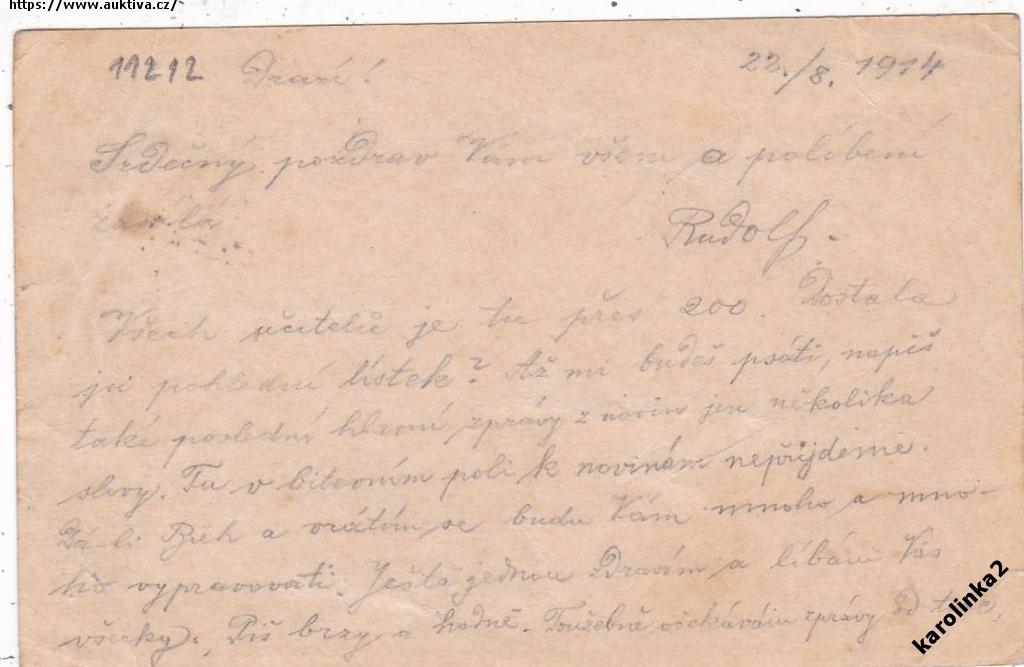 https://www.auktiva.cz/
11212 Drazí! 22./8. 1914
Srdečný pozdrav Vám všem a políbení
zasílá
Rudolf.
Všech učitelů je tu přes 200. Dostala
jsi pohlední lístek? Až mi budeš psáti, napiš
také poslední hlavní zprávy z novin jen několika
slovy. Tu v bitevním poli k novinám nepřijdeme.
Dá-li Bůh a vrátím se budu Vám mnoho a mno-
ho vypravovati. Ještě jednou zdravím a líbám Vás
všecky. Piš brzy a hodně. Toužebně očekávám zprávy od
karolinka2